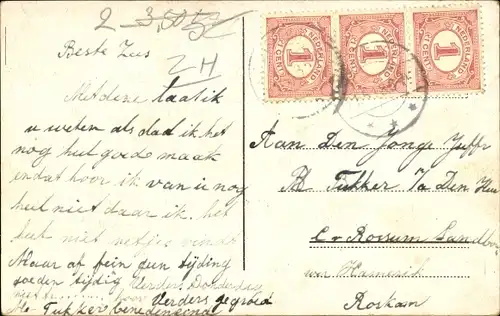 2 3,50
2H
Beste Zus
Met deze laat ik
u weten als dad ik het
nog heel goed maak
en dat hoor ik van u nog
niet daar ik het
niet netjes vindt
Maar af fein geen tijding
goeden tijding Verders Donderdag
Verders gegroed
Tukker benedeneind
NEDERLAND
1
CENT
NEDERLAND
1
CENT
NEDERLAND
1
CENT
Aan Den Jonge Juffr
B Tukker Ja Den
C v Rossum Landb
Roskam